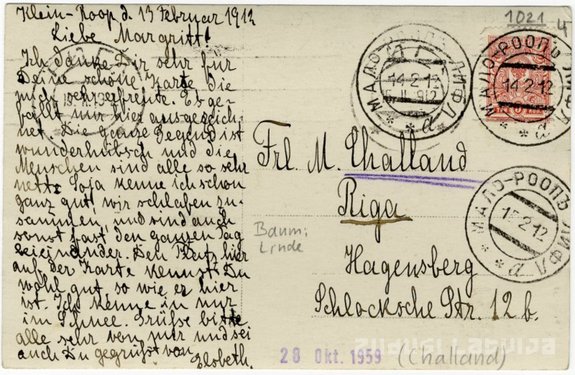 Klein-Roop d. 13 Februar 1912
Liebe Margritt!
Ich danke Dir sehr für
Deine schöne Karte die
mich sehr erfreute. Es ge-
fällt mir hier ausgezeich-
net. Die ganze Gegend ist
wunderhübsch und die
Menschen sind alle so sehr
nett. kenne ich schon
ganz gut, wir schlafen zu-
sammen und sind auch
sonst fast den ganzen Tag
beieinander. Den hier
auf der Karte kennst Du
wohl gut, so wie er hier
ist. Ich kenne in nur
im Schnee. Grüsse bitte
alle sehr von mir und sei
auch Du gegrüsst von
Elsbeth.
1021
4
МАЛО-РООПЪ ЛИФЛ.
14 2 12
МАЛО-РООПЪ ЛИФЛ.
14 2 12
МАЛО-РООПЪ ЛИФЛ.
15 2 12
Frl. M. Challand
Riga
Baum:
Linde
Hagensberg
Schlocksche Str. 12 b.
28 Okt. 1959
(Challand)
ZUDUSĪ LATVIJA